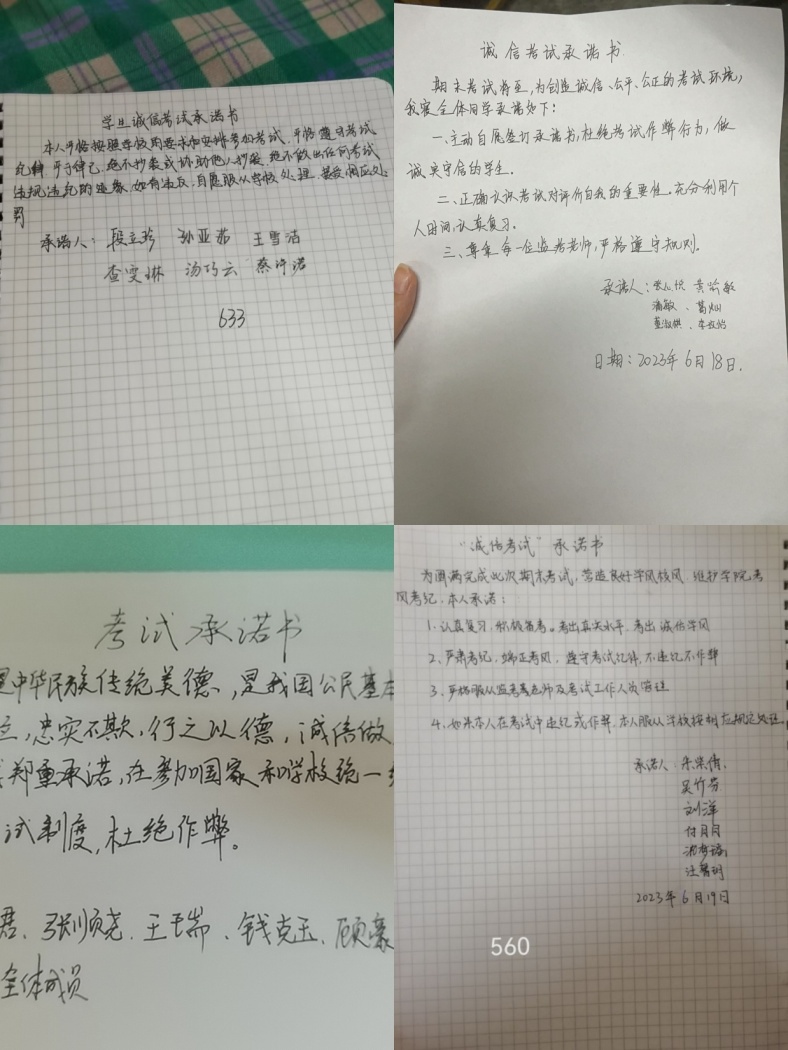 学生诚信考试承诺书
本人严格按照学校的要求和安排参加考试,严格遵守考试
纪律,严于律己,绝不抄袭或协助他人抄袭,绝不做出任何考试
违规违纪的迹象,如有违反,自愿服从学校处理,接受相应处
罚
承诺人: 段立珍 孙亚茹 王雪洁
查雯琳 汤巧云 蔡许诺
633
诚信考试承诺书
期末考试将至,为创造诚信、公平、公正的考试环境,
我寝全体同学承诺如下:
一、主动自愿签订承诺书,杜绝考试作弊行为,做
诚实守信的学生。
二、正确认识考试对评价自我的重要性。充分利用个
人时间,认真复习。
三、尊重每一位监考老师,严格遵守规则。
承诺人:
潘敏、葛灿
日期:2023年6月18日.
考试承诺书
是中华民族传统美德,是我国公民基本
立,忠实不欺,行之以德,诚信做
郑重承诺,在参加国家和学校统一
试制度,杜绝作弊。
君、张顺尧、王瑞、钱克玉、顾豪
全体成员
“诚信考试”承诺书
为圆满完成此次期末考试,营造良好学风校风,维护学院考
风考纪,本人承诺:
1、认真复习,积极备考。考出真实水平,考出诚信学风
2、严肃考纪,端正考风,遵守考试纪律,不违纪不作弊
3、严格服从监考老师及考试工作人员管理
4、如果本人在考试中违纪或作弊,本人服从学校按相应规定处理。
承诺人
吴竹芬
刘洋
付月月
汪馨玥
2023年6月19日
560